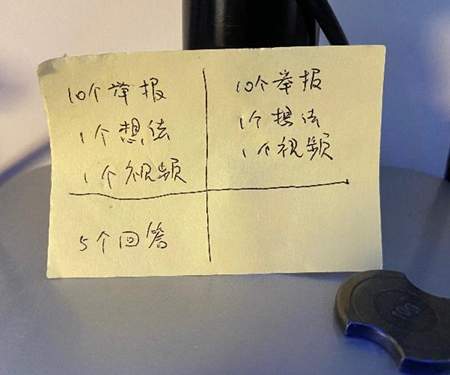 10个举报
1个想法
1个视频
10个举报
1个想法
1个视频
5个回答